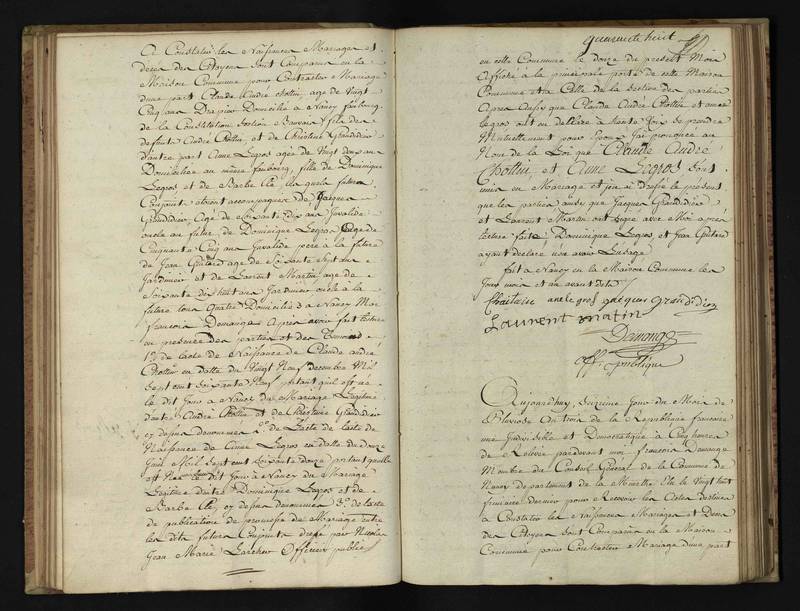 A Constater les Naissances Mariages et
décès des Citoyens sont Comparus en la
Maison Commune pour Contracter Mariage
d'une part Claude André age de Vingt
Cinq ans Drapier Domicilié a Nancy faubourg
de la Constitution Section fils de
defunts André et de Christine Grandidier
d'autre part Anne Legros agée de Vingt deux ans
Domiciliée au même faubourg, fille de Dominique
Legros et de Barbe lesquels futurs
Conjoints etoient accompagnés de Jacques
Grandidier, agé de soixante dix ans Invalide
oncle au futur, de Dominique Legros agé de
Cinquante Cinq ans Invalide pere a la future
de Jean age de Soixante Sept ans
Jardinier et de Laurent Martin, age de
Soixante dix huit ans Jardinier oncle a la
future tous quatre Domiciliés a Nancy Moi
francois Domange apres avoir fait lecture
en presence des parties et des temoins
1° de l'acte de Naissance de Claude andré
en datte du Vingt Neuf decembre Mil
Sept cent soixante Neuf portant qu'il est né
le dit Jour a Nancy du Mariage Legitime
d'entre André et de Christine Grandidier
cy dessus denommés 2° de l'acte de l'acte de
Naissance de Anne Legros en datte du douze
Mil Sept cent soixante douze portant qu'elle
est Née le dit Jour a Nancy du Mariage
Legitime d'entre Dominique Legros et de
Barbe cy dessus denommés 3° de l'acte
de publication de promesse de Mariage entre
les dits futurs Conjoints dressé par Nicolas
Jean Marie Officier public
quarante huit
en cette Commune le douze du présent Mois
Affiché à la principale porte de cette Maison
Commune et a Celle de la Section des parties
Apres aussy que Claude André et anne
legros ont eu déclaré à haute Voix se prendre
Mutuellement pour Epoux J'ai prononcé au
Nom de la Loi que Claude André
et Anne Legros Sont
unis en Mariage et j'en ai dressé le present
que les parties ainsy que Jacques Grandidier
et Laurent Martin ont signé avec Moi apres
lecture faite, Dominique Legros et Jean
ayant declaré n'en avoir l'usage
fait a Nancy en la Maison Commune les
Jour mois et an avant dits
anne legros jacques grandidier
Laurent matin
Domange
off. publique
Aujourd'huy, Seizieme Jour du Mois de
Pluviose an trois de la Republique francoise
une Indivisible et Democratique à Cinq heures
de Relevée pardevant moi francois Domange
Membre du Conseil General de la Commune de
Nancy departement de la Meurthe Elu le Vingt huit
frimaire dernier pour Recevoir les Actes destinés
à Constater les Naissances Mariages et Deces
des Citoyens Sont Comparus en la Maison
Commune pour Contracter Mariage d'une part